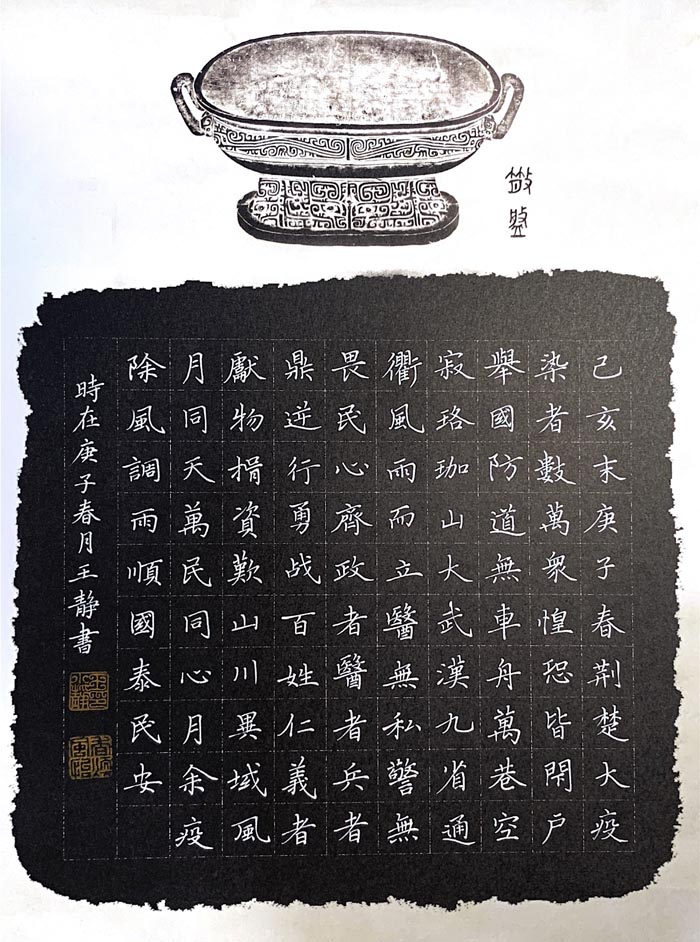 己亥末庚子春荆楚大疫
染者數萬衆惶恐皆閉户
舉國防道無車舟萬巷空
寂珞珈山大武漢九省通
衢風雨而立醫無私警無
畏民心齊政者醫者兵者
鼎逆行勇战百姓仁義者
獻物捐資歎山川異域風
月同天萬民同心月余疫
除風調雨順國泰民安
時在庚子春月王靜書